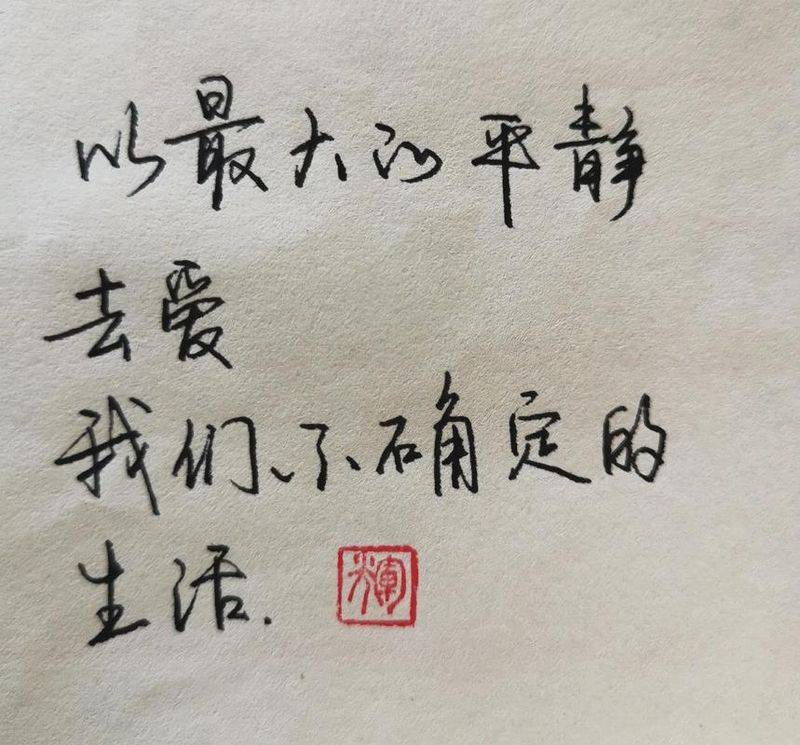 以最大的平静
去爱
我们不确定的
生活.
輝